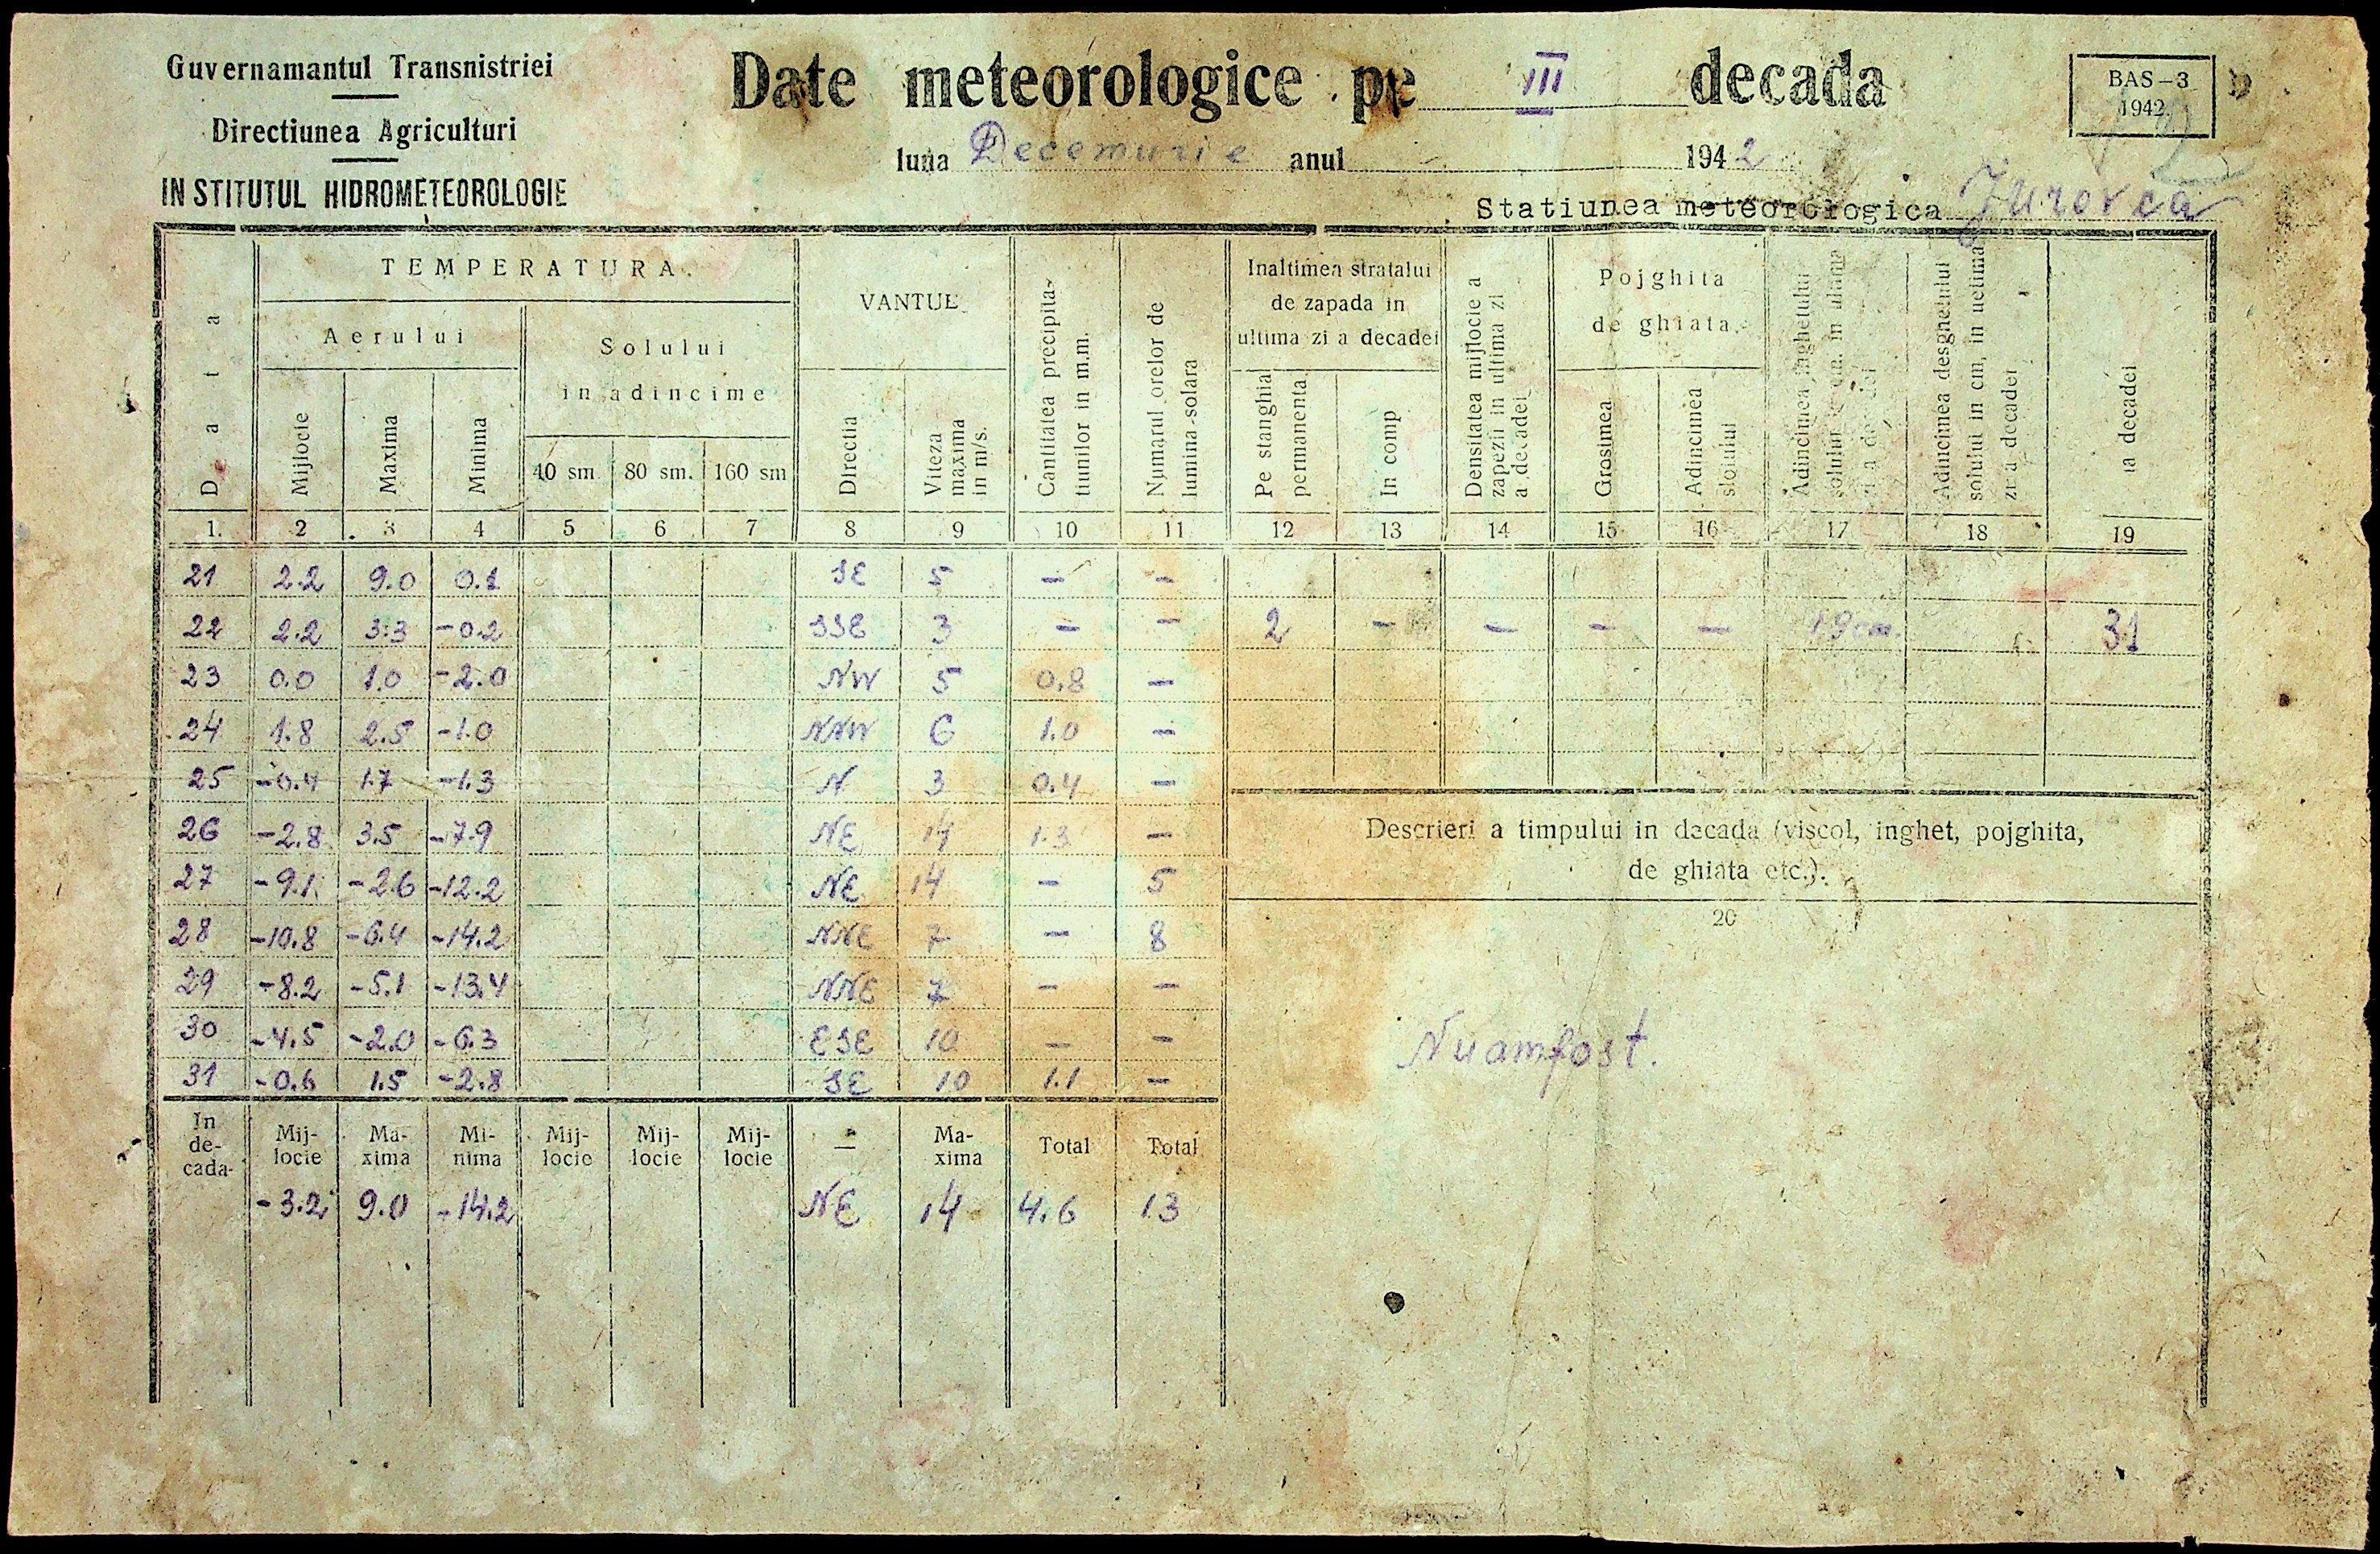 Guvernamantul Transnistriei
Directiunea Agriculturi
INSTITUTUL HIDROMETEOROLOGIE
Date meteorologice pe III decada
luna Decemurie anul 1942
BAS-3
1942.
Statiunea meteorologica
Data
TEMPERATURA
Aerului
Mijlocie
Maxima
Minima
Solului
in adincime
40 sm. 80 sm. 160 sm
VANTUL
Directia
Viteza
maxima
in m/s.
Cantitatea precipita-
tiunilor in m.m.
Numarul orelor de
lumina-solara
Inaltimea stratalui
de zapada in
ultima zi a decadei
Pe stanghia
permanenta
In comp
Densitatea mijlocie a
zapezii in ultima zi
a decadei
Pojghita
de ghiata
Grosimea
Adincimea
sloiului
Adincimea inghetului
solului in cm. in
zi a decadei
Adincimea desghetului
solului in cm. in
zi a decadei
la decadei
1. 2 3 4 5 6 7 8 9 10 11 12 13 14 15 16 17 18 19
21 2.2 9.0 0.1 SE 5 — —
22 2.2 3.3 -0.2 SSE 3 — — 2 — — — — 19 cm. 31
23 0.0 1.0 -2.0 NW 5 0.8 —
24 1.8 2.5 -1.0 NNW 6 1.0 —
25 -0.4 1.7 -1.3 N 3 0.4 —
26 -2.8 3.5 -7.9 NE 14 1.3 —
27 -9.1 -2.6 -12.2 NE 14 — 5
28 -10.8 -6.4 -14.2 NNE 7 — 8
29 -8.2 -5.1 -13.4 NNE 7 — —
30 -4.5 -2.0 -6.3 ESE 10 — —
31 -0.6 1.5 -2.8 SE 10 1.1 —
In
de-
cada-
Mij-
locie
Ma-
xima
Mi-
nima
Mij-
locie
Mij-
locie
Mij-
locie
—
Ma-
xima
Total
Total
-3.2 9.0 -14.2 NE 14 4.6 13
Descrieri a timpului in decada (viscol, inghet, pojghita,
de ghiata etc.).
20
Nuamfost.